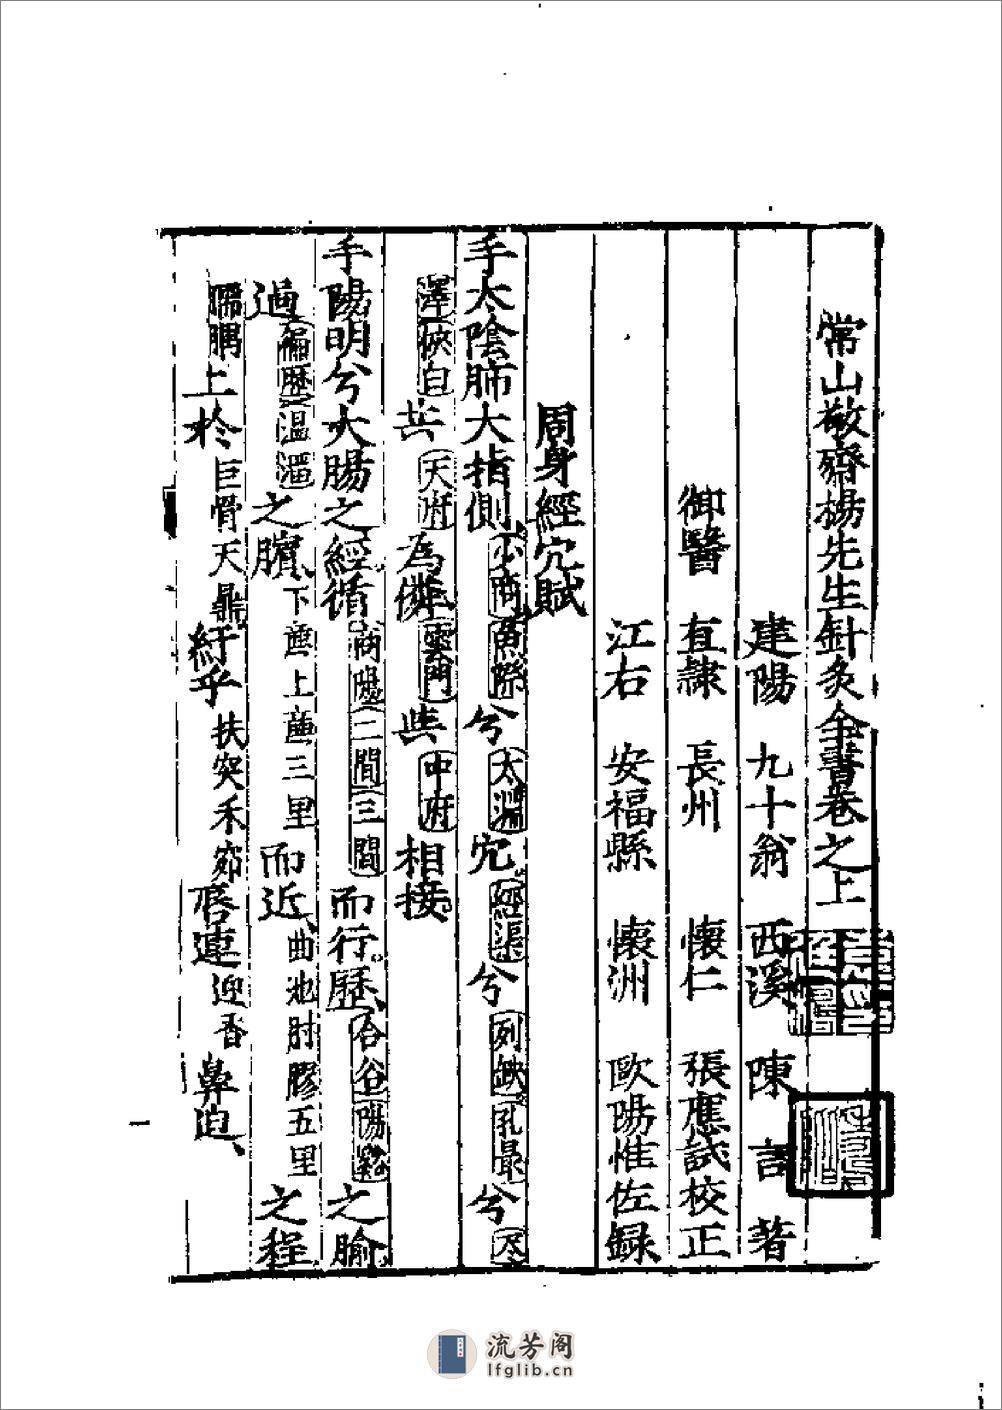 常山敬齋楊先生針灸全書卷之上
建陽 九十翁 西溪 陳言 著
御醫 直隷 長州 懐仁 張應試校正
江右 安福縣 懐洲 歐陽惟佐録
周身經穴賦
手太陰肺大指側少商魚際兮太淵穴經渠兮列缺孔最兮尺
澤俠白共天府為憐雲門與中府相接
手陽明兮大腸之經循商陽二間三間而行歷合谷陽谿之腧
過偏歷温溜之臏下廉上廉三里而近曲池肘膠五里之程
臑髃上於巨骨天鼎紆乎扶突禾窌唇連迎香鼻迫
一
流芳阁
lfglib.cn